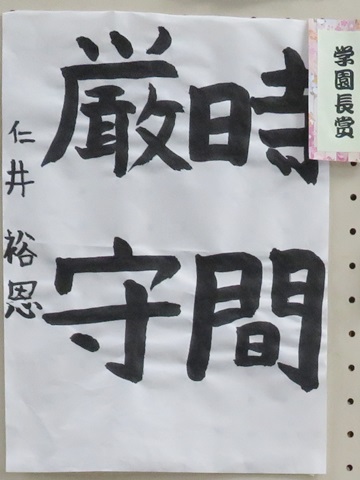 学園長賞
時間
厳守
仁井裕恩